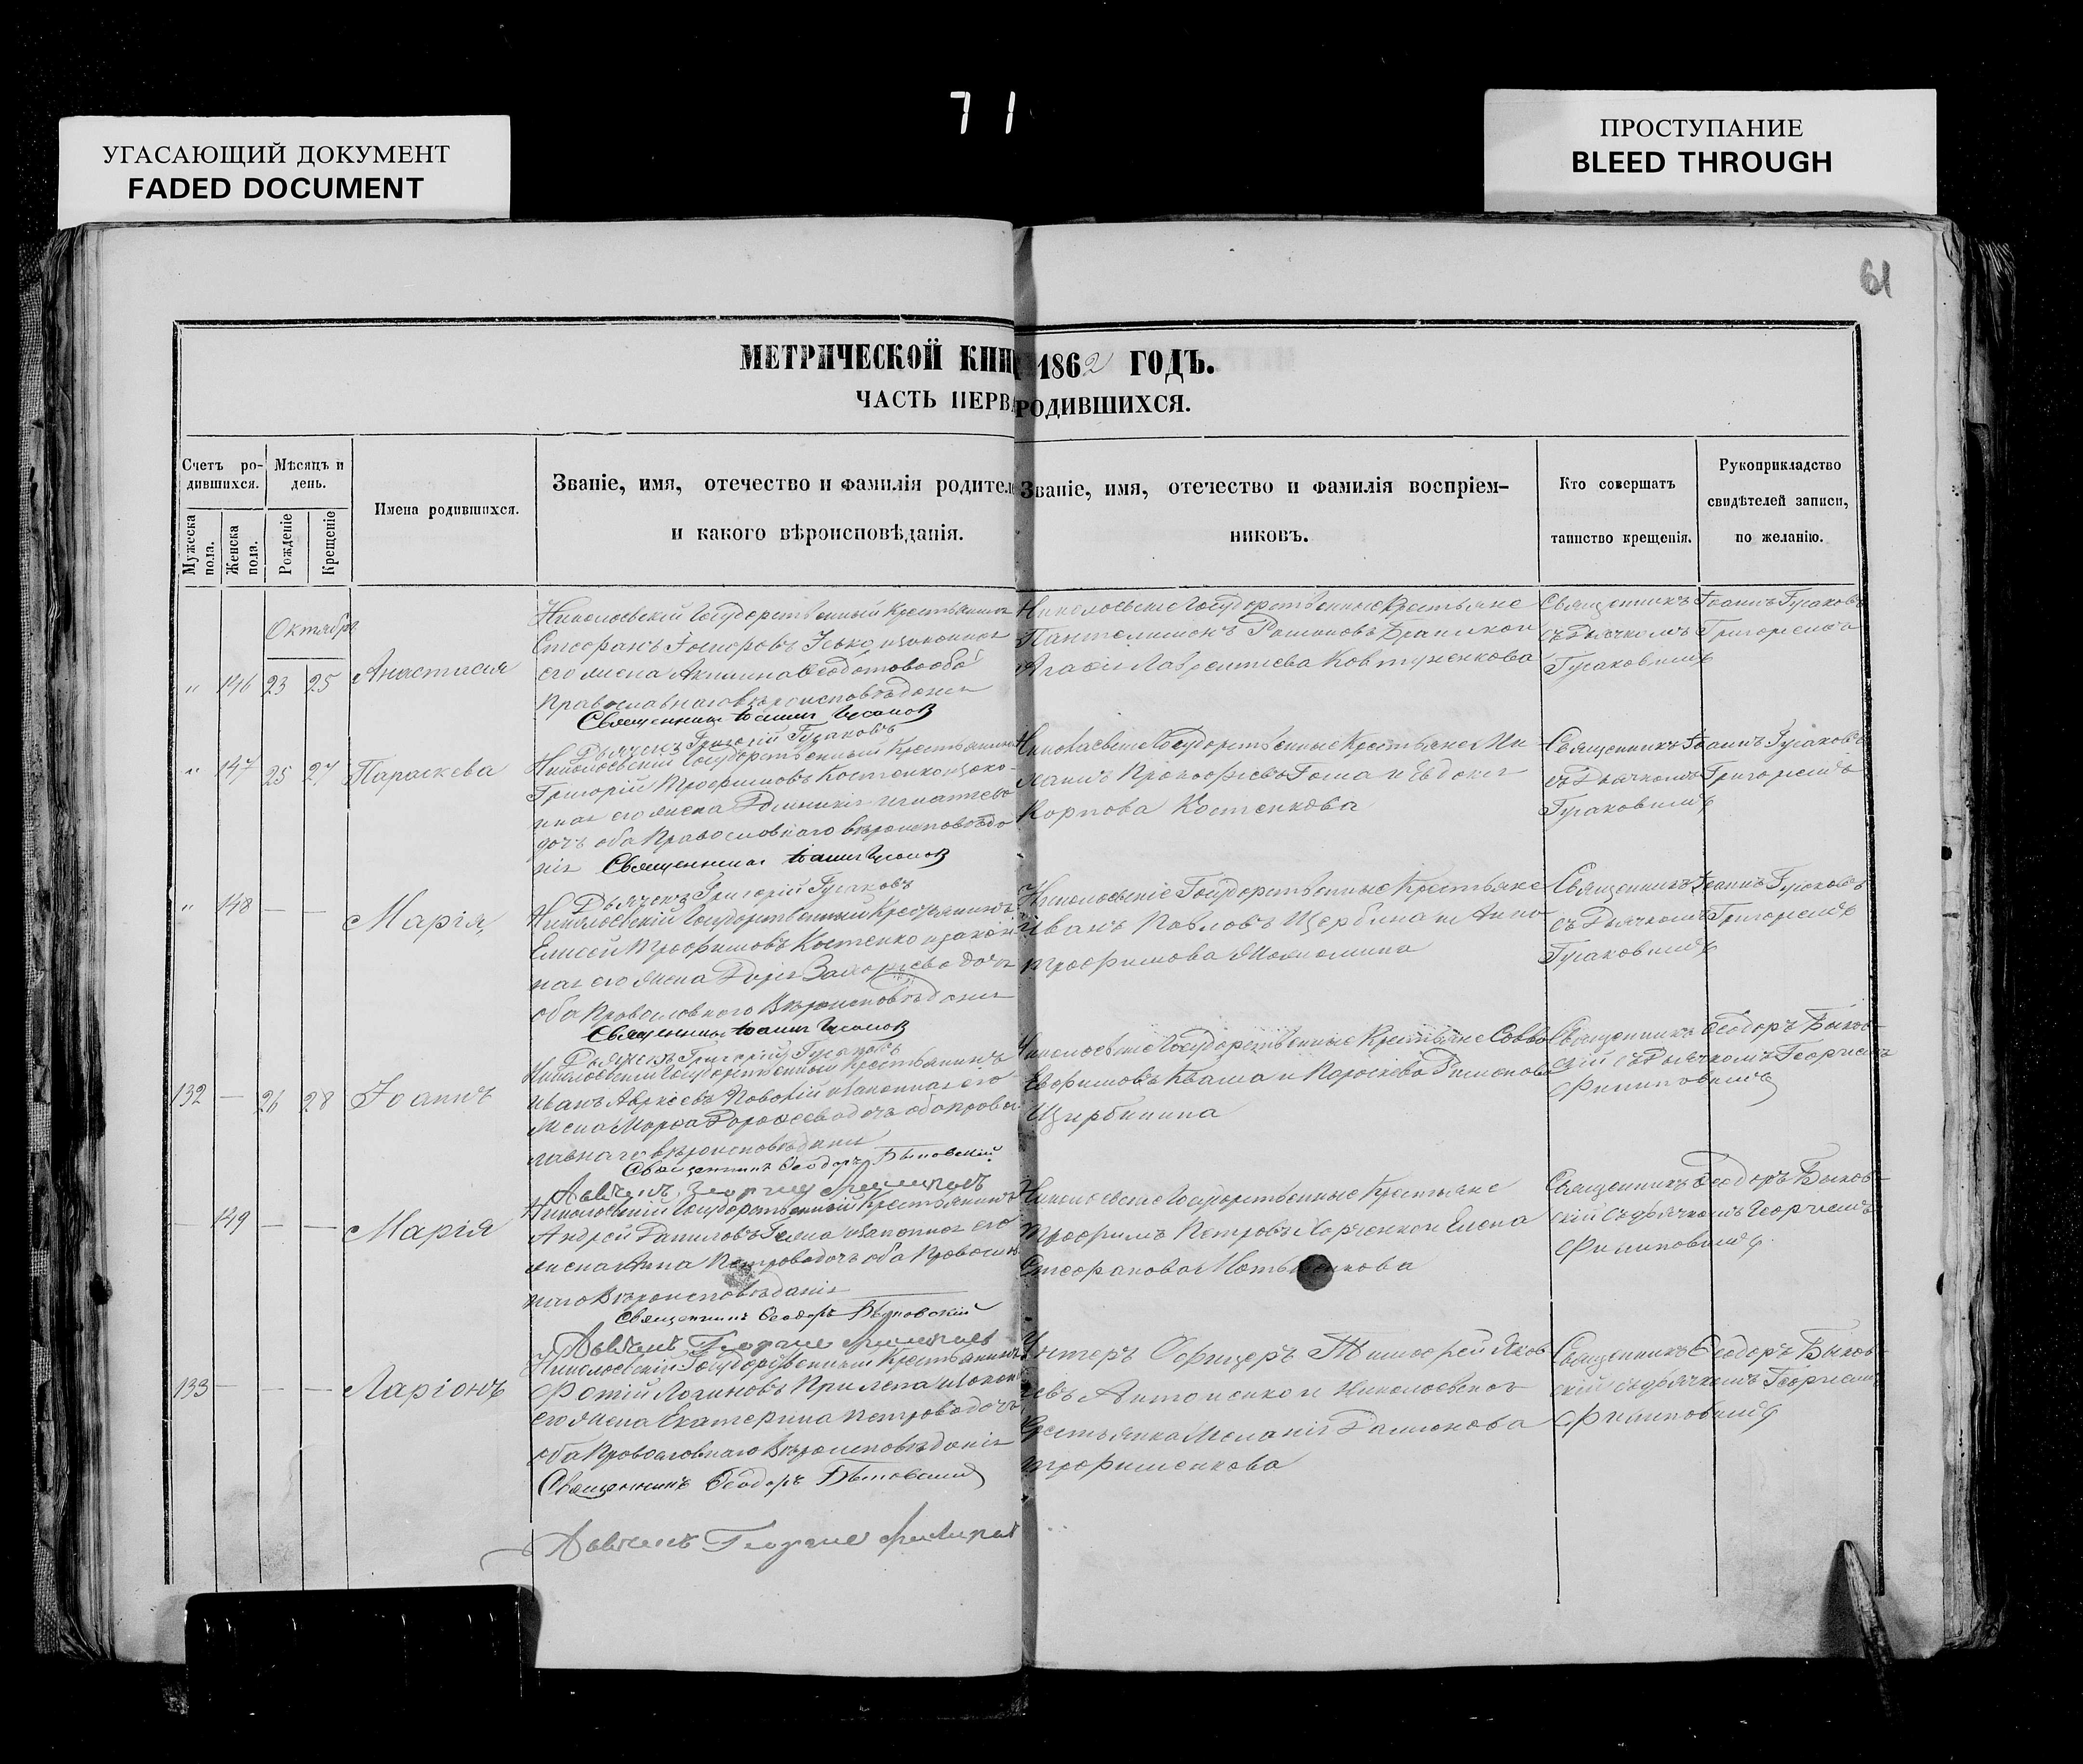 71
УГАСАЮЩИЙ ДОКУМЕНТ
FADED DOCUMENT
ПРОСТУПАНИЕ
BLEED THROUGH
61
МЕТРИЧЕСКОЙ КНИ
1862 ГОДЪ.
ЧАСТЬ ПЕРВА
РОДИВШИХСЯ.
Счетъ ро-
дившихся.
Мужеска пола.
Женска пола.
Мѣсяцъ и
день.
Рожденіе
Крещеніе
Имена родившихся.
Званіе, имя, отечество и фамилія родител
и какого вѣроисповѣданія.
Званіе, имя, отечество и фамилія воспріем-
никовъ.
Кто совершатъ
таинство крещенія.
Рукоприкладство
свидѣтелей записи,
по желанію.
Октября
" 146 23 25 Анастасия
Николаевскій Государственный Крестьянинъ
Стефанъ законная
его жена Акилина Ѳеодотова оба
Православнаго вѣроисповѣдания
Священникъ Іоаннъ Гусаковъ
Дьячекъ Григорій Гусаковъ
Николаевские Государственные Крестьяне
Пантелимонъ
Агафія Лаврентиева Ковтуненкова
Священникъ Іоаннъ Гусаковъ
съ Дьячкомъ Григориемъ
Гусаковымъ
" 147 25 27 Параскева
Николаевскій Государственный Крестьянинъ
Григорій Трофимовъ Костенко и зако-
ная его жена Игнатиева
дочь оба Православнаго вѣроисповѣда
нія Священникъ Іоаннъ Гусаковъ
Дьячекъ Григорій Гусаковъ
Николаевские Государственные Крестьяне Ми
хаилъ Прокофиевъ и Евдокия
Карпова Костенкова
Священникъ Іоаннъ Гусаковъ
съ Дьячкомъ Григориемъ
Гусаковымъ
" 148 — — Марія
Николаевскій Государственный Крестьянинъ
Елисей Трофимовъ Костенко и закон
ная его жена Дарія Захариева дочь
оба Православнаго Вѣроисповѣдания
Священникъ Іоаннъ Гусаковъ
Дьячекъ Григорій Гусаковъ
Николаевскіе Государственные Крестьяне
Иванъ Павловъ Щербина и Анна
Трофимова
Священникъ Іоаннъ Гусаковъ
съ Дьячкомъ Григориемъ
Гусаковымъ
132 — 26 28 Іоаннъ
Николаевскій Государственный Крестьянинъ
Иванъ и законная его
жена Марфа Дорофеева дочь оба правос
лавнаго вѣроисповѣдания
Священникъ Ѳеодоръ Быковскій
Дьячекъ Георгий Филиповъ
Николаевские Государственные Крестьяне Савва
Ефимовъ Кваша и Параскева
Щербинина
Священникъ Ѳеодоръ Быков-
скій съ Дьячкомъ Георгиемъ
Филиповымъ
— 149 — — Марія
Николаевскій Государственный Крестьянинъ
Андрей Даниловъ и законная его
жена Анна Петрова дочь оба Православ
наго Вѣроисповѣданія
Священникъ Ѳеодоръ Быковскій
Дьячекъ Георгие Филиповъ
Николаевские Государственные Крестьяне
Трофимъ Петровъ и Елена
Стефанова
Священникъ Ѳеодоръ Быков-
скій съ дьячкомъ Георгиемъ
Филиповымъ.
133 — — — Ларіонъ
Николаевскій Государственный Крестьянинъ
Фотій Логиновъ и закон
его жена Екатерина Петрова дочь
оба Православнаго Вѣроисповѣданія
Священникъ Ѳеодоръ Быковский
Дьячекъ Георгие Филипов
Унтеръ Офицеръ Тимофей Яков
левъ Антоненко и Николаевская
Крестьянка Меланія
Трофименкова
Священникъ Ѳеодоръ Быков-
скій съ дьячкомъ Георгиемъ
Филиповымъ